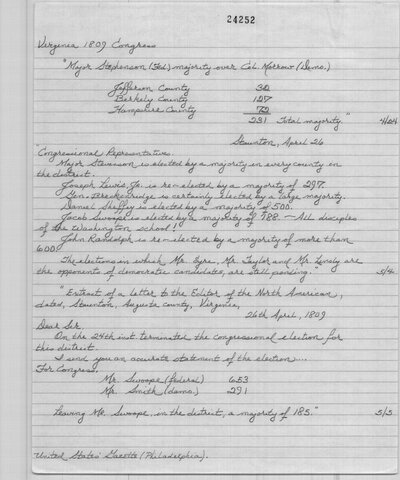 24252
Virginia 1809 Congress
"Major Stephenson (Fed) majority over Col. Morrow (Demo.)
Jefferson County 30
Berkely County 127
Hampshire County
231 Total majority" 4/24
Staunton, April 26
"Congressional Representatives.
Major Stevenson is elected by a majority in every county in
the district.
Joseph Lewis, Jr. is re-elected by a majority of 297.
Gen. Breckenridge is certainly elected by a large majority.
Daniel Sheffey is elected by a majority of 500.
Jacob Swoope is elected by a majority of 188. - All disciples
of the Washington school!
John Randolph is re-elected by a majority of more than
600.
The elections in which Mr. Eyre, Mr. Taylor and Mr. are
the opponents of democratic candidates, are still pending." 5/4
"Extract of a letter to the Editor of the North American,
dated, Staunton, Augusta County, Virginia,
26th April, 1809
Dear Sir.
On the 24th inst. terminated the congressional election for
this district.
I send you an accurate statement of the election....
For Congress.
Mr. Swoope (federal) 653
Mr. Smith (demo.) 291
Leaving Mr. Swoope, in the district, a majority of 185." 5/5
United States' Gazette (Philadelphia).